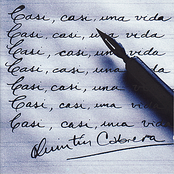 Casi, casi una vida
Casi, casi, una vida
Casi, casi una vida
Casi, casi, una vida
Casi, casi, una vida
Casi, casi, una vida
Casi, casi, una vida
Quintín Cabrera